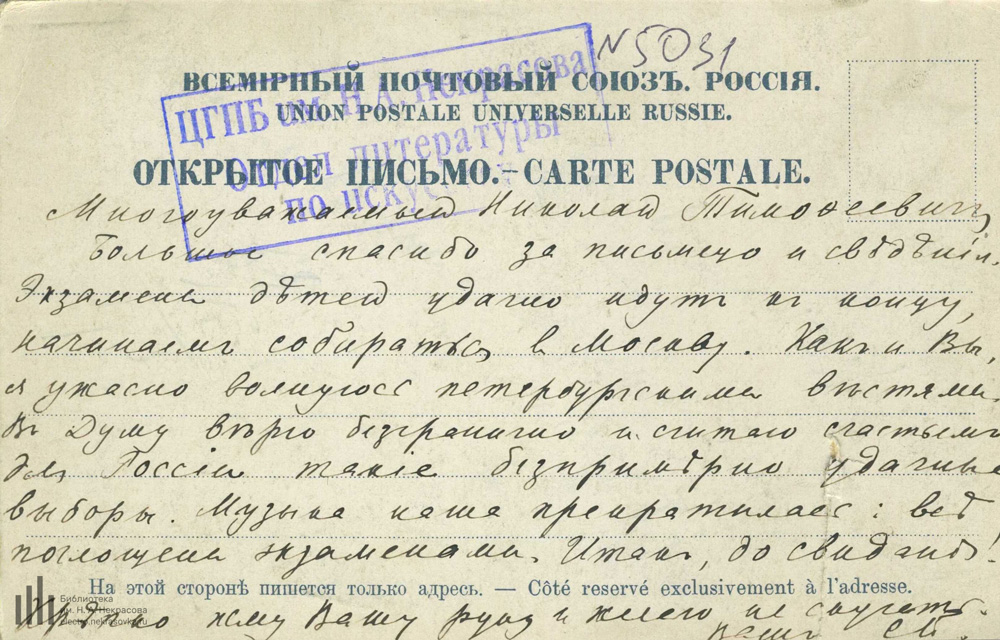 N 5031
ВСЕМІРНЫЙ ПОЧТОВЫЙ СОЮЗЪ. РОССІЯ.
UNION POSTALE UNIVERSELLE RUSSIE.
ЦГПБ им. Н. А. Некрасова
Отдел литературы
по искус
ОТКРЫТОЕ ПИСЬМО.–CARTE POSTALE.
Многоуважаемый Николай Тимофеевичъ,
Большое спасибо за письмецо и свѣдѣнія.
Экзамены дѣтей удачно идутъ къ концу,
начинаемъ собираться въ Москву. Какъ и Вы,
я ужасно волнуюсь петербургскими вѣстями.
Въ Думу вѣрю безгранично и считаю счастьемъ
для Россіи такіе безпримѣрно удачные
выборы. Музыка наша прекратилась: всѣ
поглощены экзаменами. Итакъ, до свиданія!
На этой сторонѣ пишется только адресъ. — Côté reservé exclusivement à l'adresse.
Крѣпко жму Вашу руку и желаю не скучать.
Вашъ
Библиотека
им. Н. А. Некрасова
electro.nekrasovka.ru